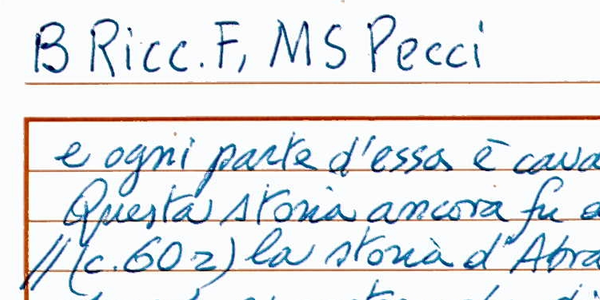 B Ricc. F, MS Pecci
e ogni parte d'essa è cava
Questa storia ancora fu a
//(c. 60 2) la storia d'Abra